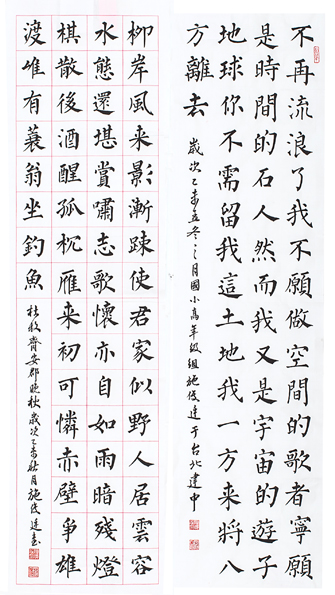 不再流浪了我不願做空間的歌者寧願
是時間的石人然而我又是宇宙的遊子
地球你不需留我這土地我一方来將八
方離去
歲次乙未孟冬之月國小高年級組施俊廷于台北建中
柳岸風来影漸疎使君家似野人居雲容
水態還堪賞嘯志歌懷亦自如雨暗殘燈
棋散後酒醒孤枕雁来初可憐赤壁爭雄
渡唯有蓑翁坐釣魚
杜牧齊安郡晚秋歲次乙未秋月施俊廷書